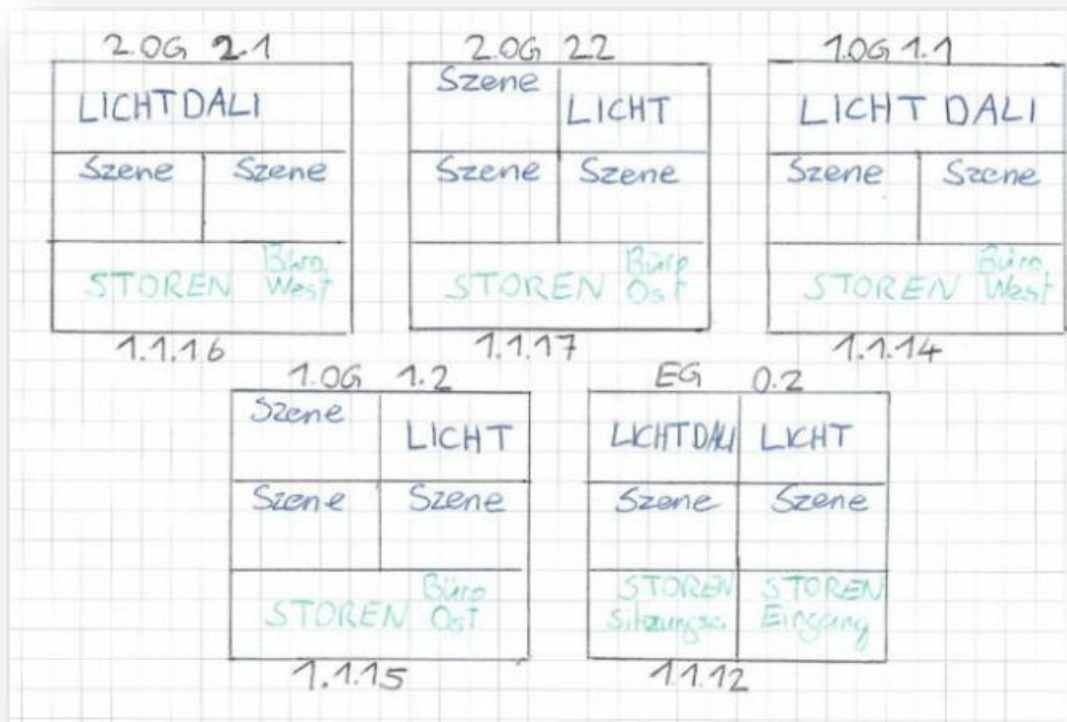 2.OG 2.1
LICHT DALI
Szene Szene
STOREN Büro West
1.1.16
2.OG 22
Szene
LICHT
Szene Szene
STOREN Büro Ost
1.1.17
1.OG 1.1
LICHT DALI
Szene Szene
STOREN Büro West
1.1.14
1.OG 1.2
Szene
LICHT
Szene Szene
STOREN Büro Ost
1.1.15
EG 0.2
LICHT DALI LICHT
Szene Szene
STOREN STOREN
Eingang
1.1.12